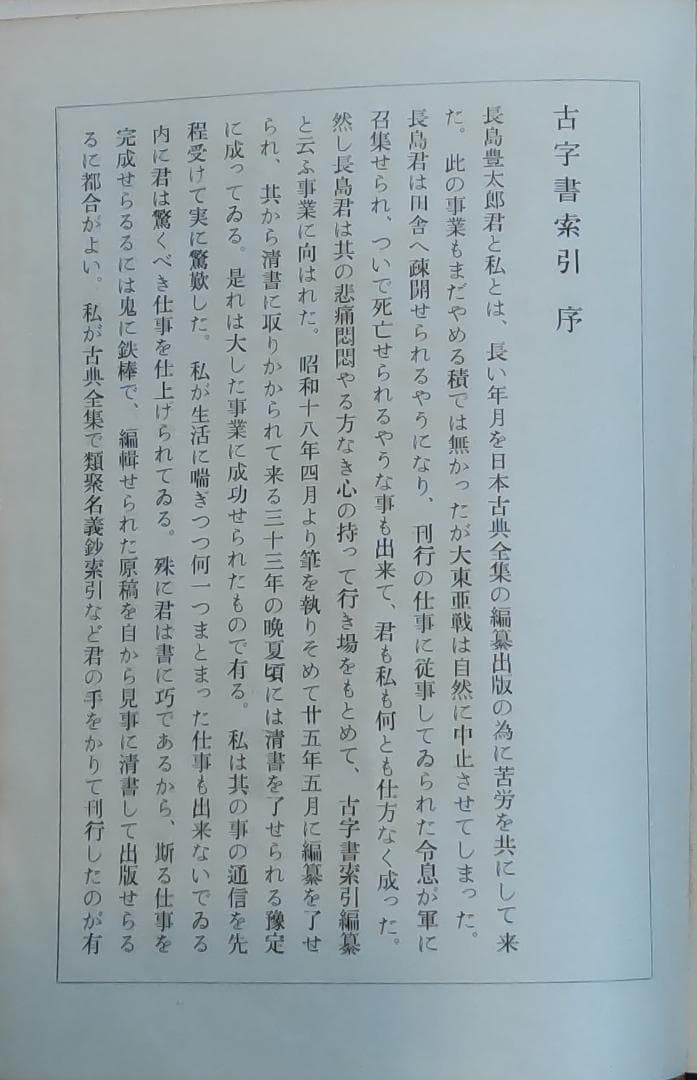 古字書索引 序
長島豊太郎君と私とは、長い年月を日本古典全集の編纂出版の為に苦労を共にして来
た。此の事業もまだやめる積では無かったが大東亜戦は自然に中止させてしまった。
長島君は田舎へ疎開せられるやうになり、刊行の仕事に従事してゐられた令息が軍に
召集せられ、ついで死亡せられるやうな事も出来て、君も私も何とも仕方なく成った。
然し長島君は其の悲痛悶悶やる方なき心の持って行き場をもとめて、古字書索引編纂
と云ふ事業に向はれた。昭和十八年四月より筆を執りそめて廿五年五月に編纂を了せ
られ、其から清書に取りかかられて来る三十三年の晩夏頃には清書を了せられる豫定
に成ってゐる。是れは大した事業に成功せられたもので有る。私は其の事の通信を先
程受けて実に驚歎した。私が生活に喘ぎつつ何一つまとまった仕事も出来ないでゐる
内に君は驚くべき仕事を仕上げられてゐる。殊に君は書に巧であるから、斯る仕事を
完成せらるるには鬼に鉄棒で、編輯せられた原稿を自から見事に清書して出版せらる
るに都合がよい。私が古典全集で類聚名義鈔索引など君の手をかりて刊行したのが有